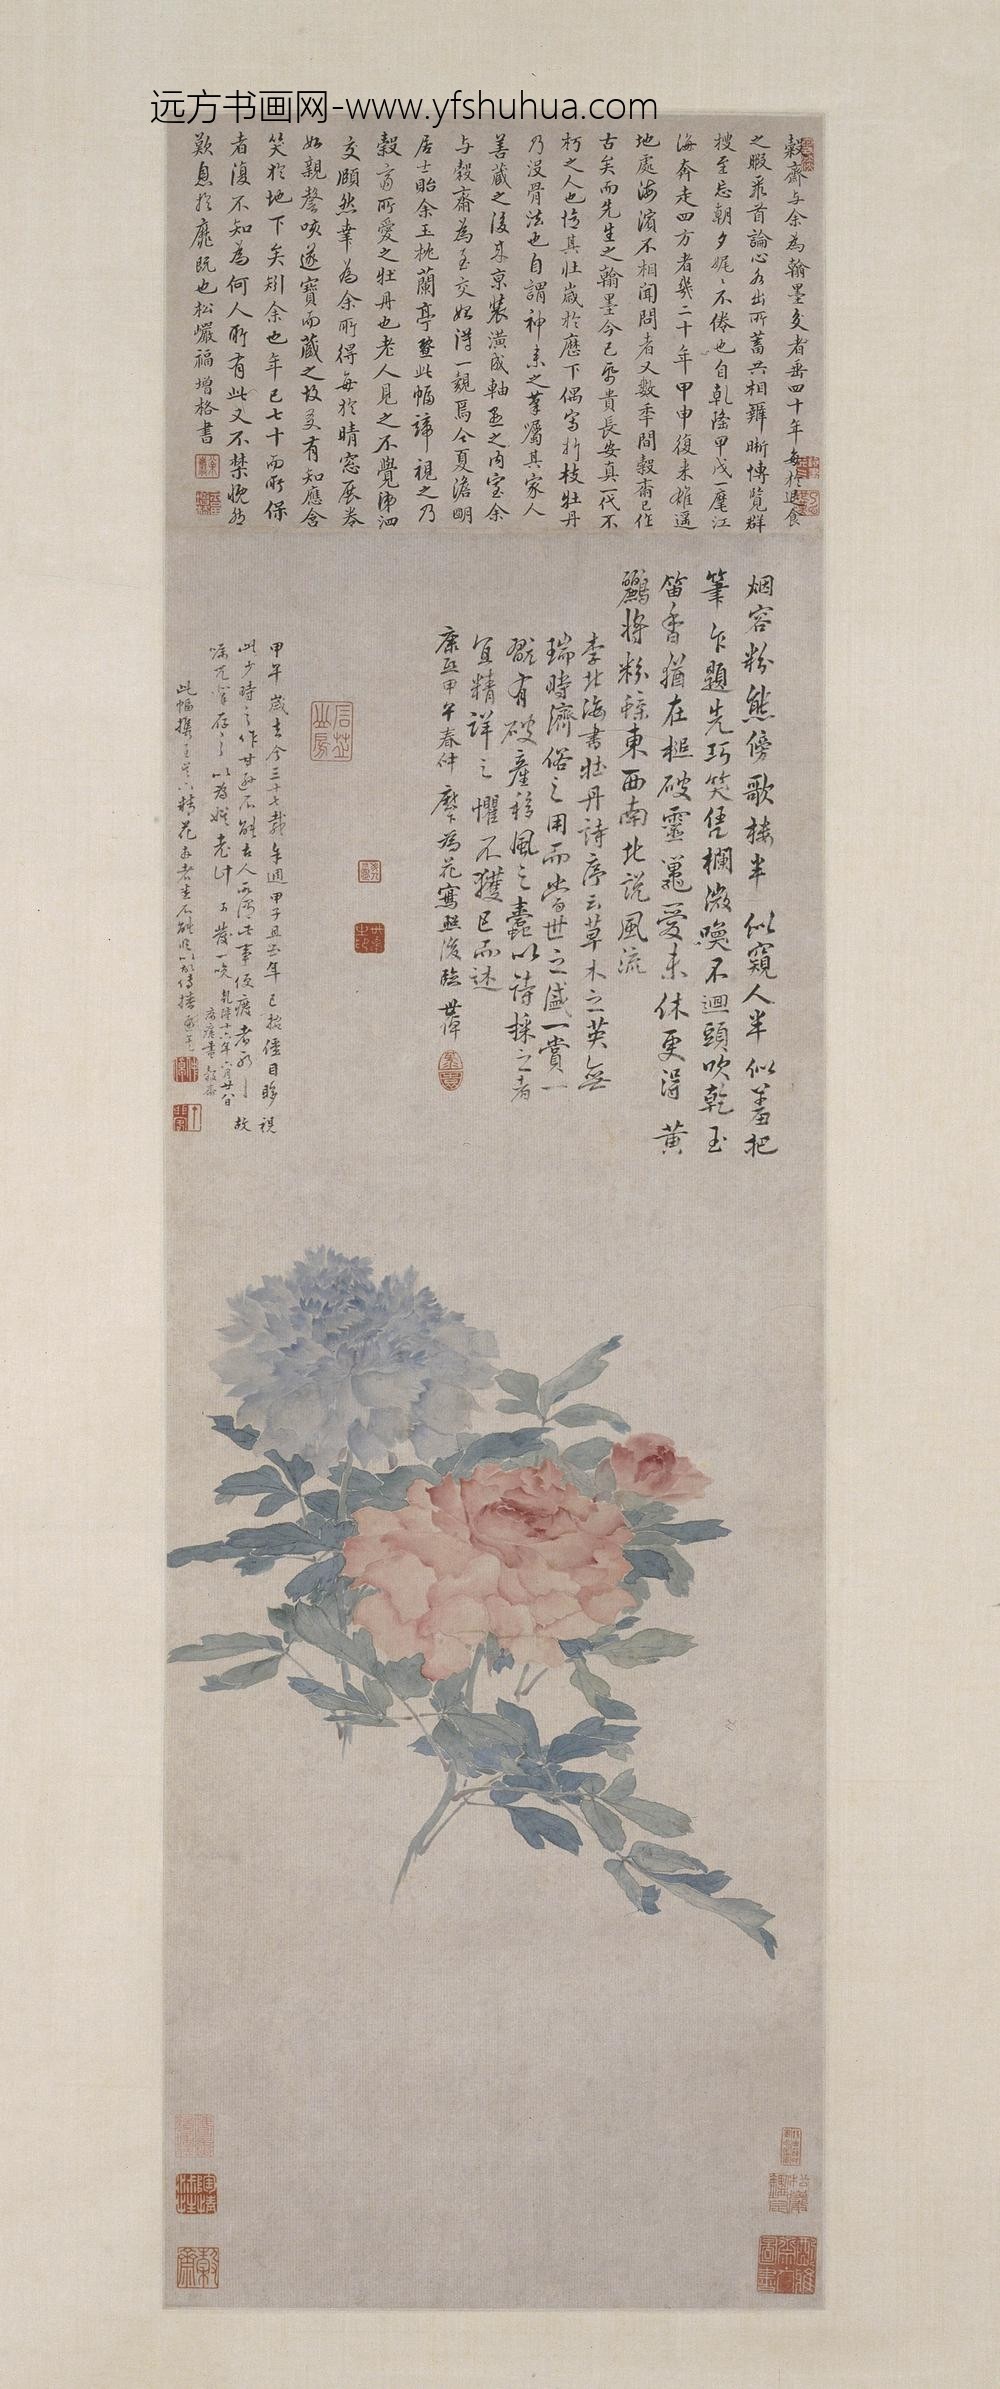 远方书画网-www.yfshuhua.com
穀齋与余為翰墨交者垂四十年每於退食
之暇聚首論心各出所蓄共相辨晰博覽群
搜至忘朝夕娓々不倦也自乾隆甲戌一麾江
海奔走四方者幾二十年甲申復来雖遥
地處海濱不相聞問者又數年間穀齋已作
古矣而先生之翰墨今已紙貴長安真一代不
朽之人也憶其壯歲於歷下偶寫折枝牡丹
乃没骨法也自謂神来之筆囑其家人
善蔵之後来京裝潢成軸置之内室余
与穀斋為至交始得一覩焉今夏澹明
居士貽余玉枕蘭亭暨此幅諦視之乃
穀斎所愛之牡丹也老人見之不覺涕泗
交頤然幸為余所得每於晴窓展卷
如親謦咳遂寶而蔵之故友有知應含
笑於地下矣矧余也年已七十而所保
者復不知為何人所有此又不禁慨然
歎息於靡既也松巖福增格書
烟容粉態傍歌楼半似窺人半似羞把
筆乍題先巧笑凭欄微喚不迴頭吹乾玉
笛香猶在槌破靈鼉愛未休更得黄
鸝將粉蝶東西南北説風流
李北海書牡丹詩序云草木之英無
瑞時濟俗之用而當世之盛一賞一
翫有破產移風之蠹以詩採之者
宜精詳之懼不獲已而述
康熙甲午春仲 為花寫照後臨 世倬
甲午歲去今三十七載年週甲子且出年已 僅目眵視
此少時之作甘 不能古人所謂此事便廢者 故
乾隆十六年六月廿八日
穀齋